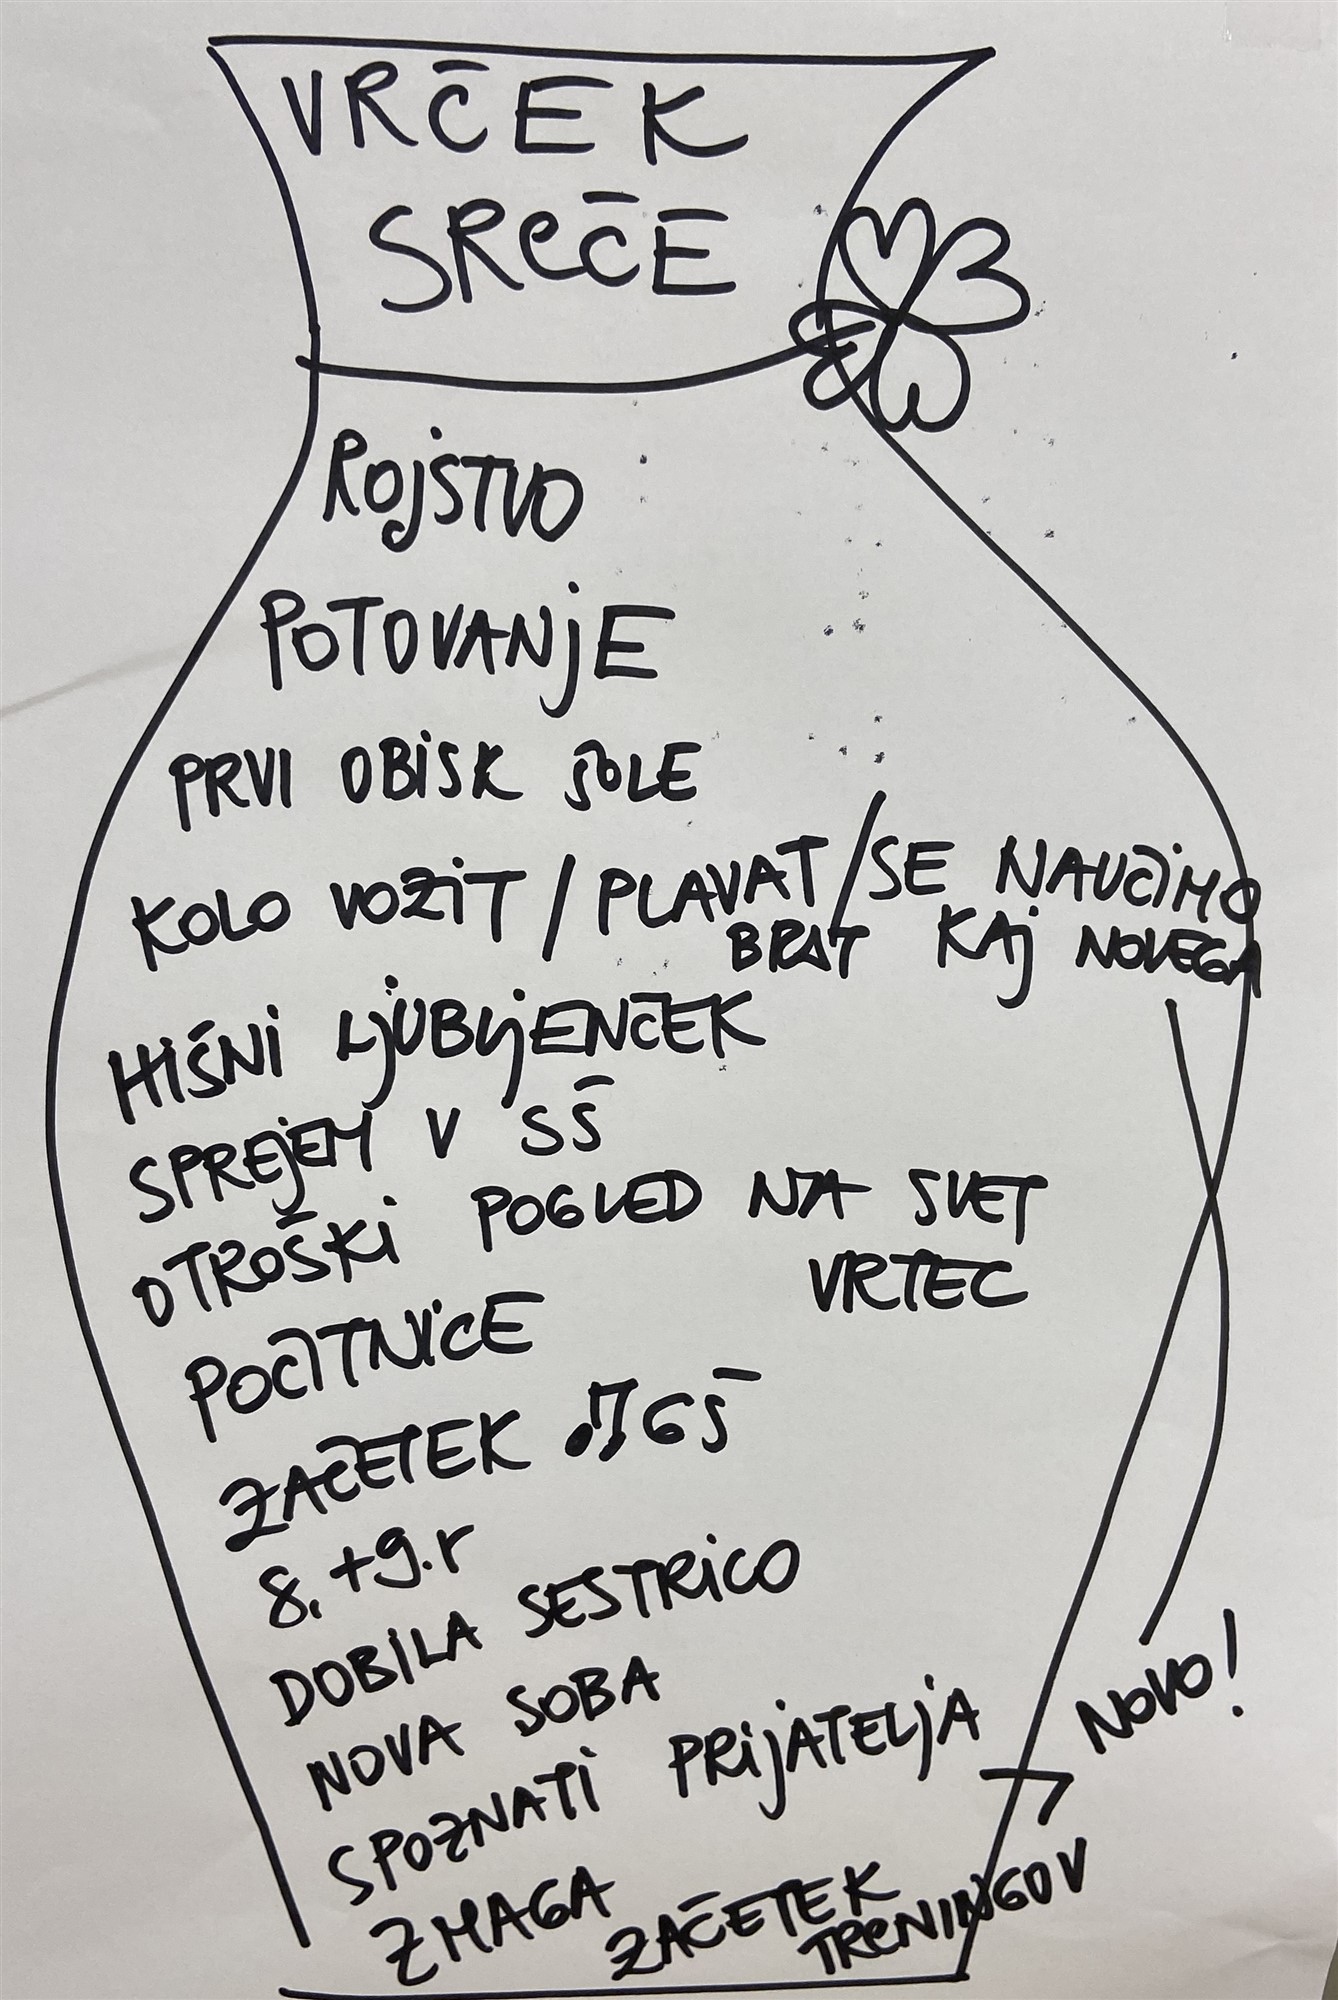 VRČEK
SREČE
ROJSTVO
POTOVANJE
PRVI OBISK ŠOLE
KOLO VOZIT / PLAVAT / SE NAUČIMO
BRAT KAJ NOVEGA
HIŠNI LJUBLJENČEK
SPREJEM V SŠ
OTROŠKI POGLED NA SVET
VRTEC
POČITNICE
ZAČETEK GŠ
8. + 9. r
DOBILA SESTRICO
NOVA SOBA
NOVO!
SPOZNATI PRIJATELJA
ZMAGA
ZAČETEK
TRENINGOV